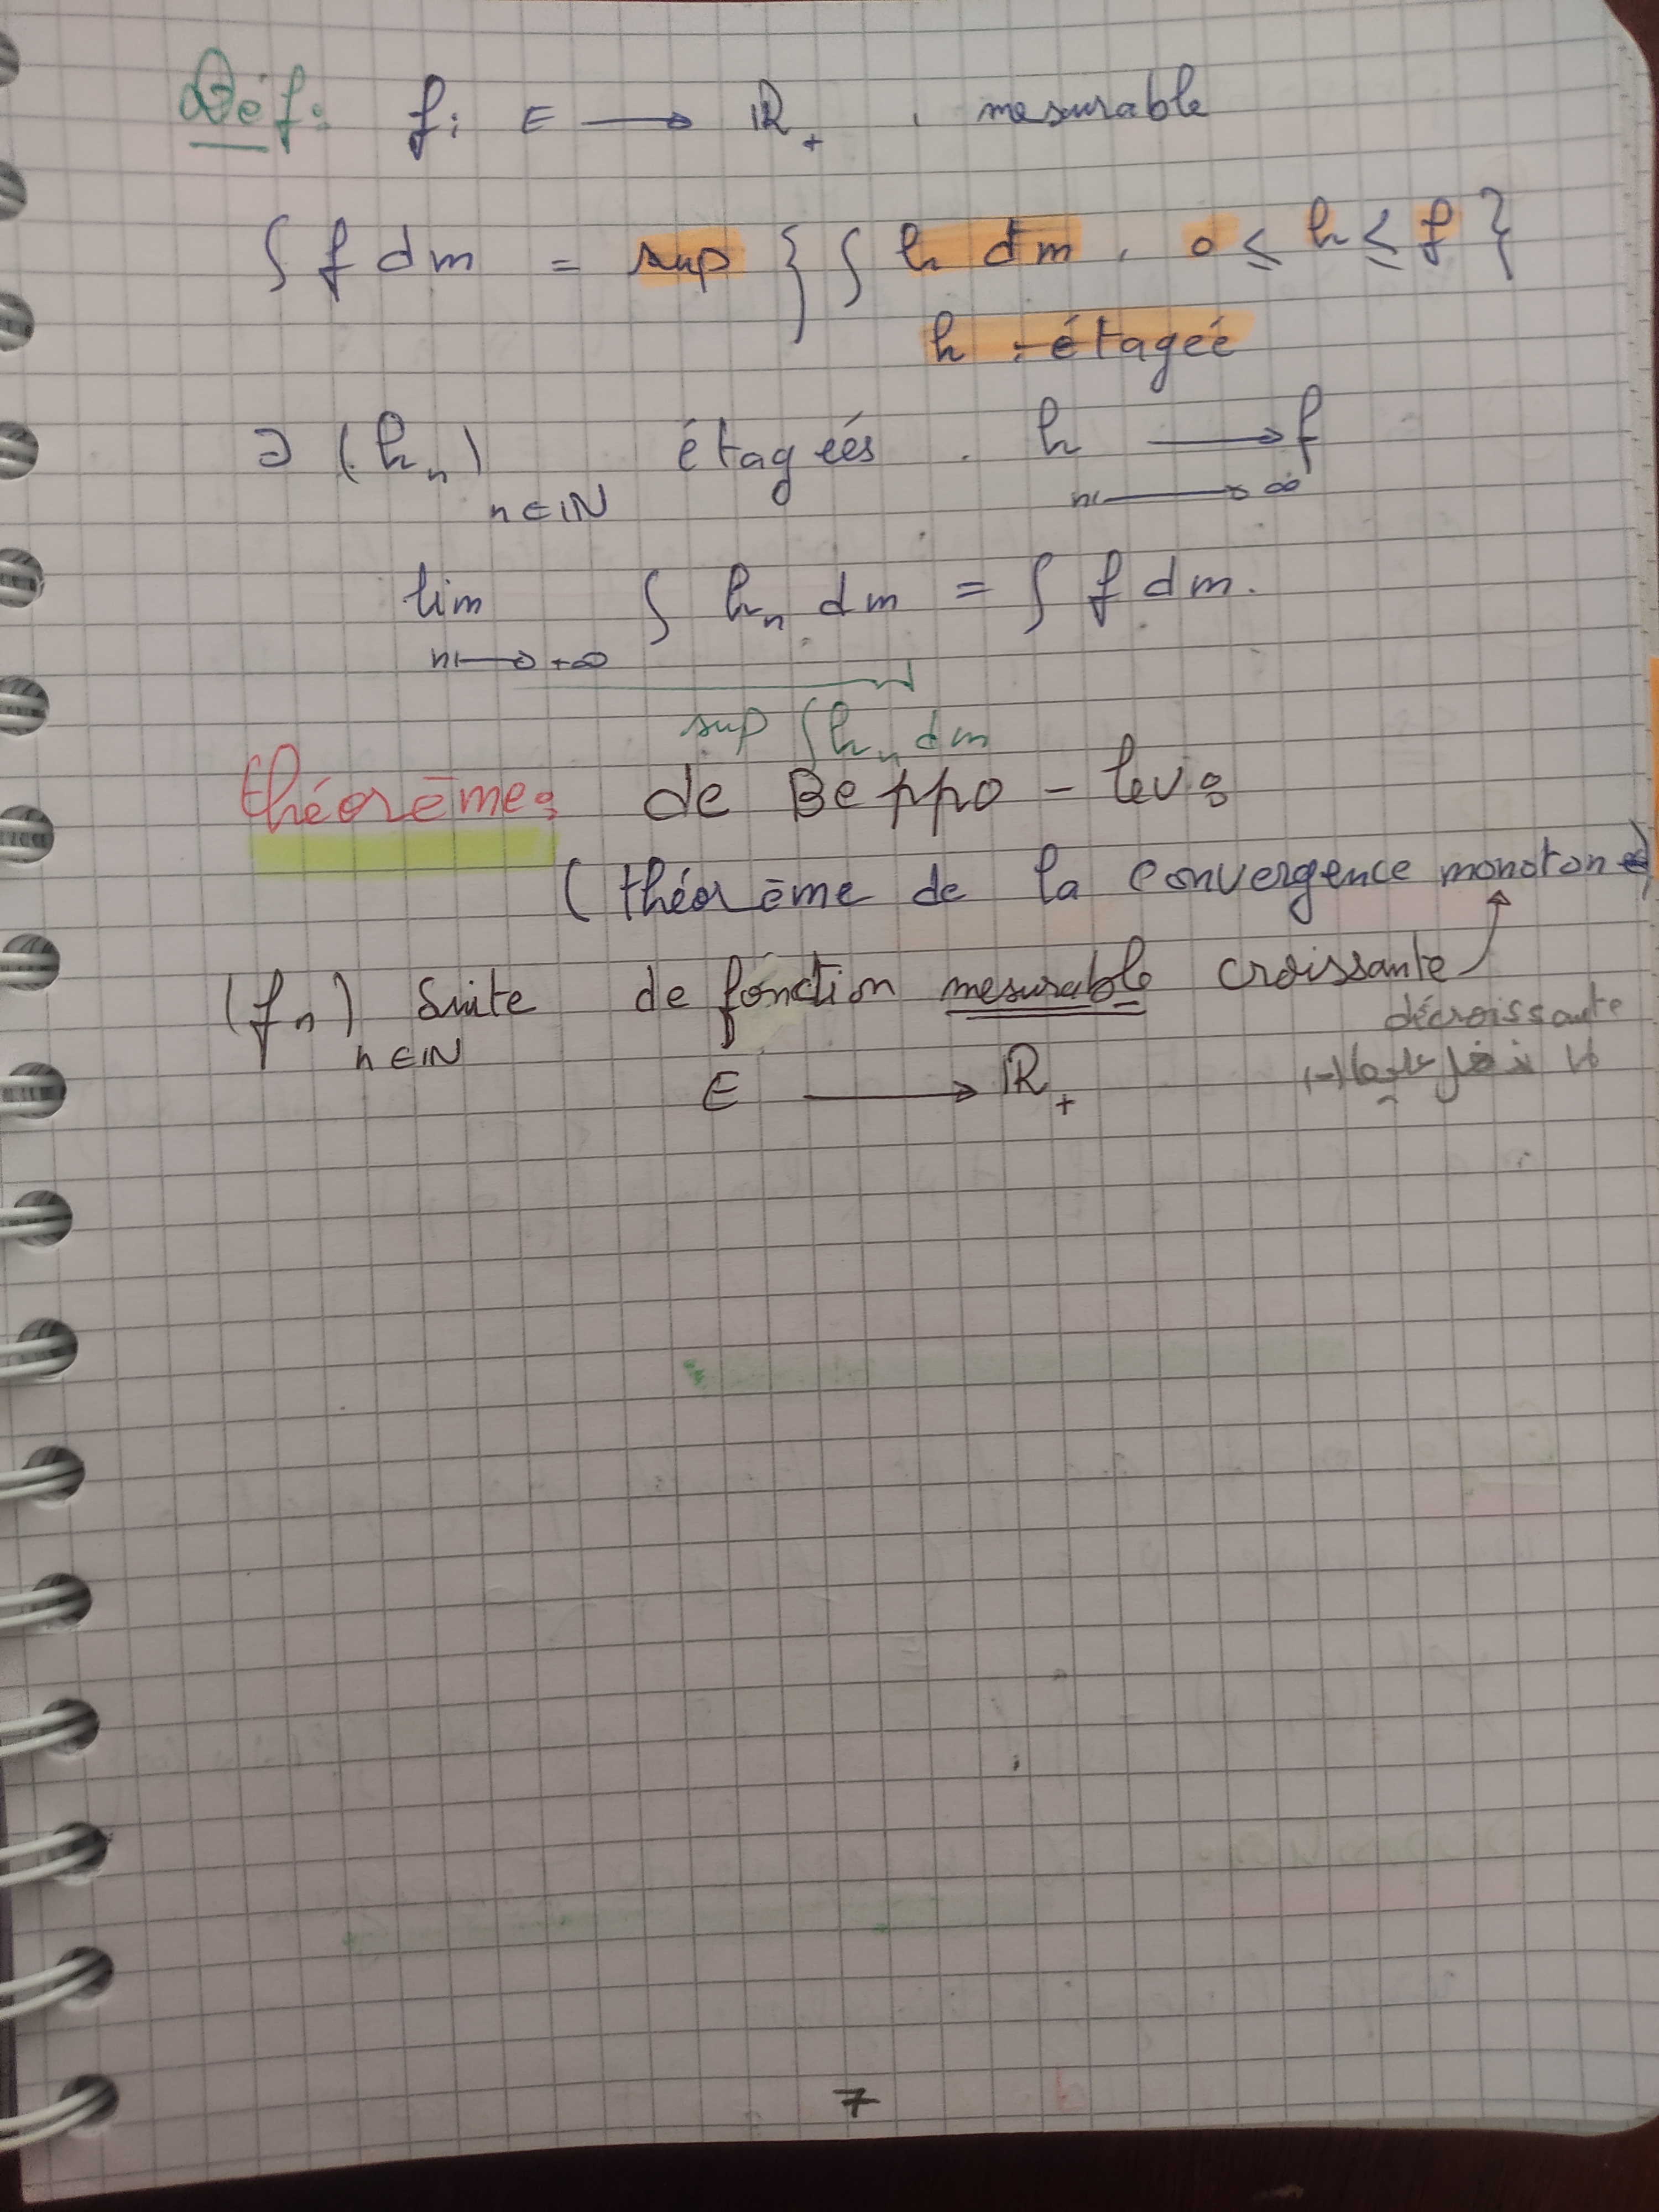 Déf: f: E → ℝ₊ , mesurable
∫ f dm = sup { ∫ h dm , 0 ≤ h ≤ f }
h : étagée
∃ (hₙ) n∈ℕ étagéés . h → f n→∞
lim n→+∞ ∫ hₙ dm = ∫ f dm.
sup ∫ hₙ dm
théorème: de Beppo - levi
(théorème de la convergence monotone)
(fₙ) n∈ℕ Suite de fonction mesurable croissante
décroissante
E → ℝ₊
7